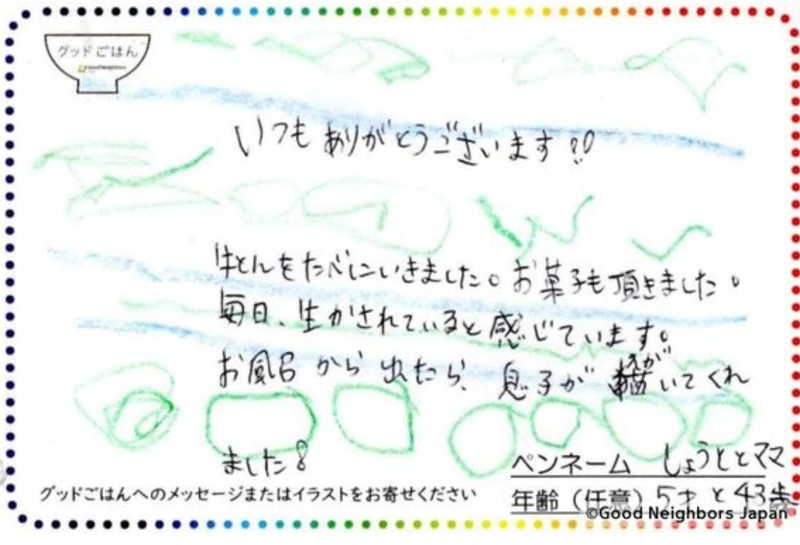 グッドごはん
GoodNeighbors
いつもありがとうございます!!
牛とんをたべにいきました。お菓子も頂きました。
毎日、生かされていると感じています。
お風呂から出たら、息子が描いてくれ
えが
ました!
ペンネーム しょうととママ
グッドごはんへのメッセージまたはイラストをお寄せください
年齢(任意)5才と43歳
©Good Neighbors Japan